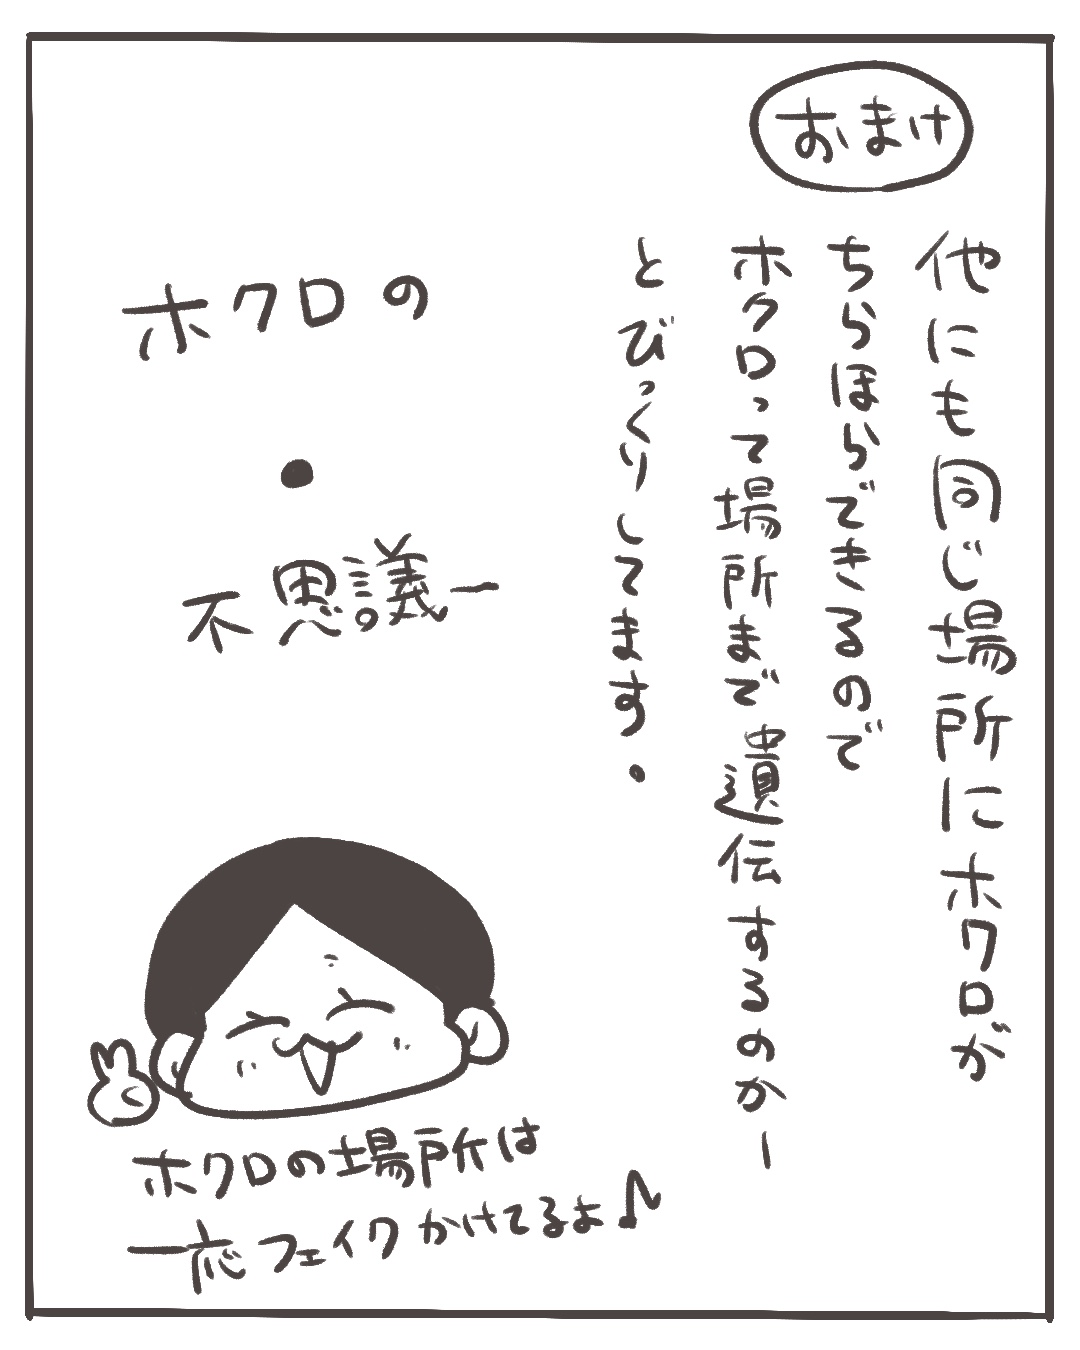 おまけ
他にも同じ場所にホクロが
ちらほらできるので
ホクロって場所まで遺伝するのかー
とびっくりしてます.
ホクロの
不思議ー
ホクロの場所は
一応フェイクかけてるよ♪